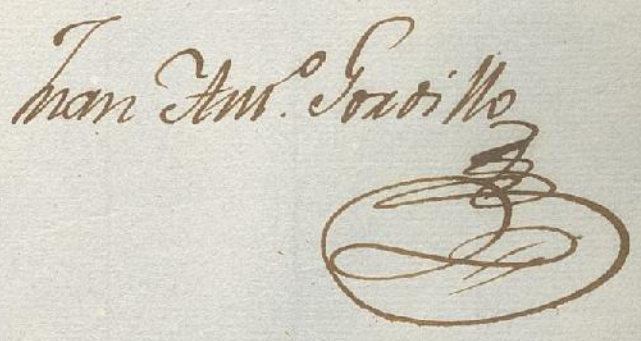 Juan Antº. Gordillo